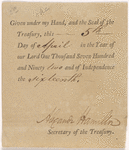 Given under my Hand, and the Seal of the
Treasury, this 5th
Day of April in the Year of
our Lord One Thousand Seven Hundred
and Ninety two and of Independence
the Sixteenth.
Alexander Hamilton
Secretary of the Treasury.